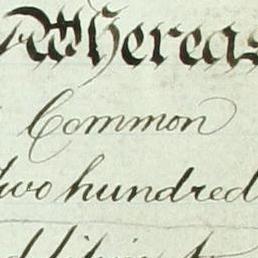 Whereas
Common
Two hundred